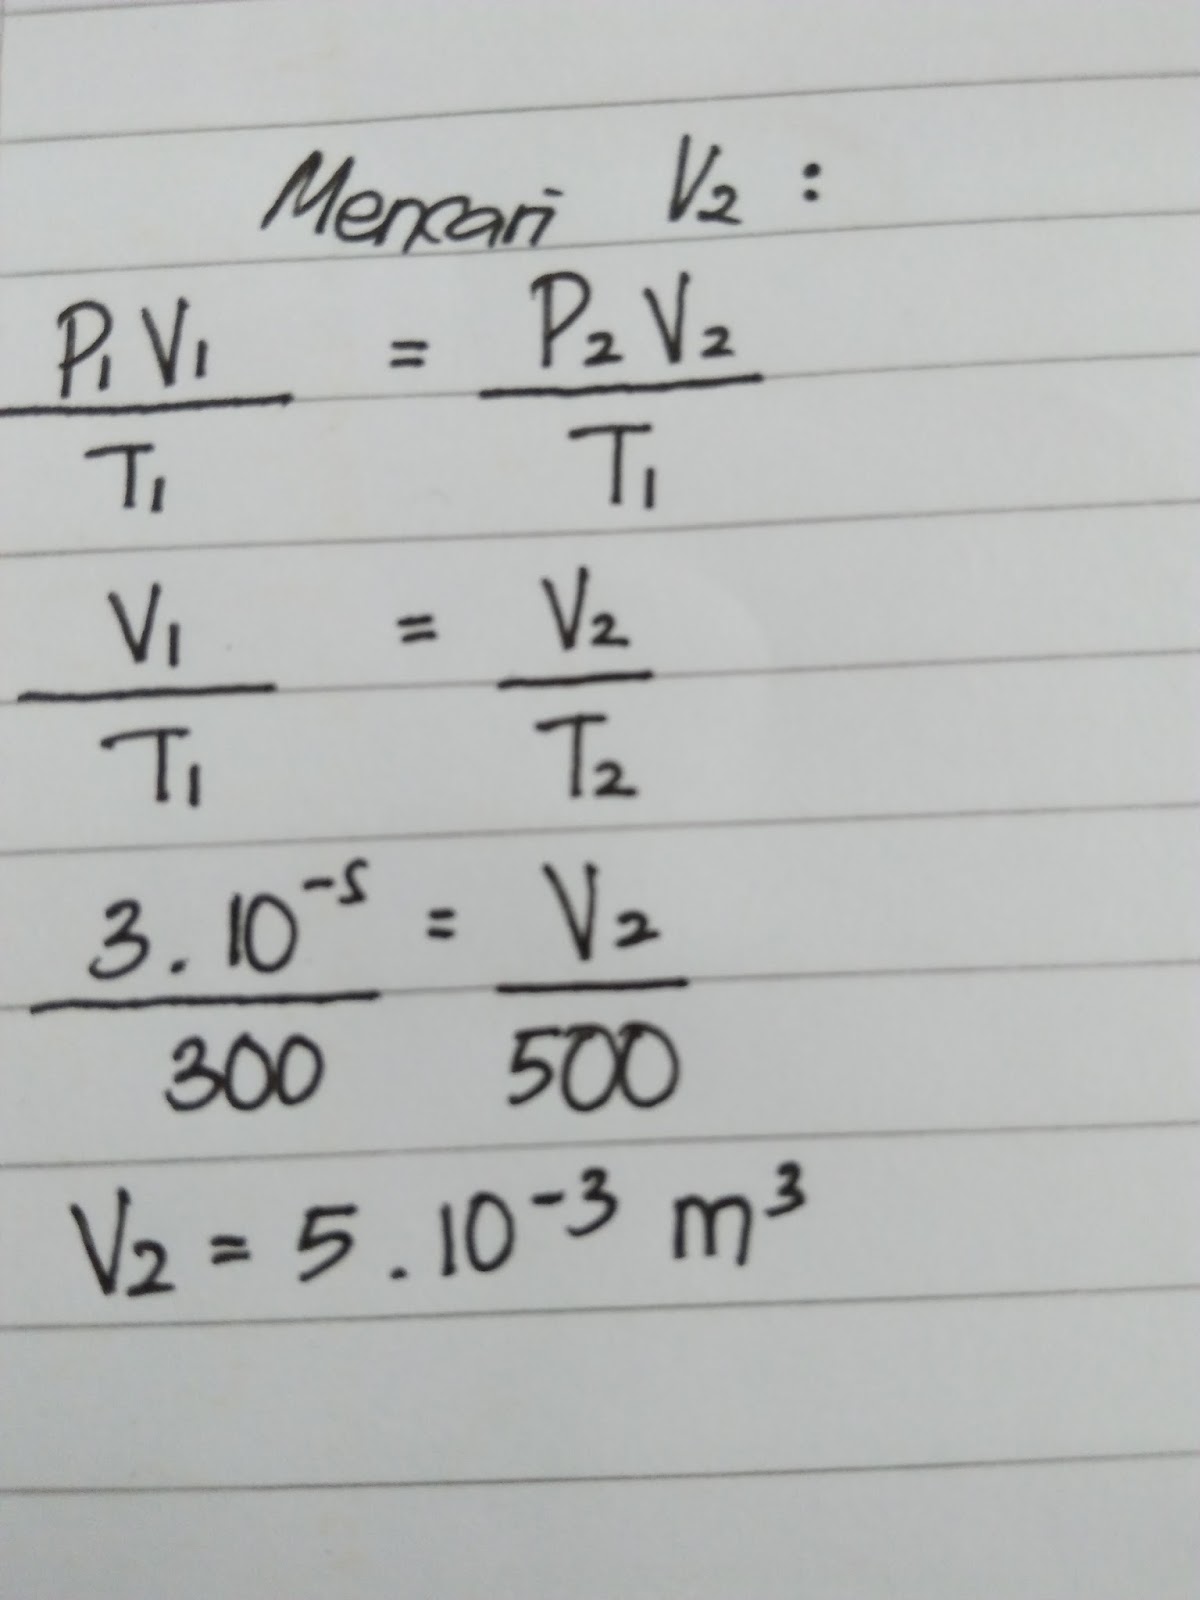 Mencari V₂ :
P₁ V₁ / T₁ = P₂ V₂ / T₁
V₁ / T₁ = V₂ / T₂
3 . 10⁻⁵ / 300 = V₂ / 500
V₂ = 5 . 10⁻³ m³